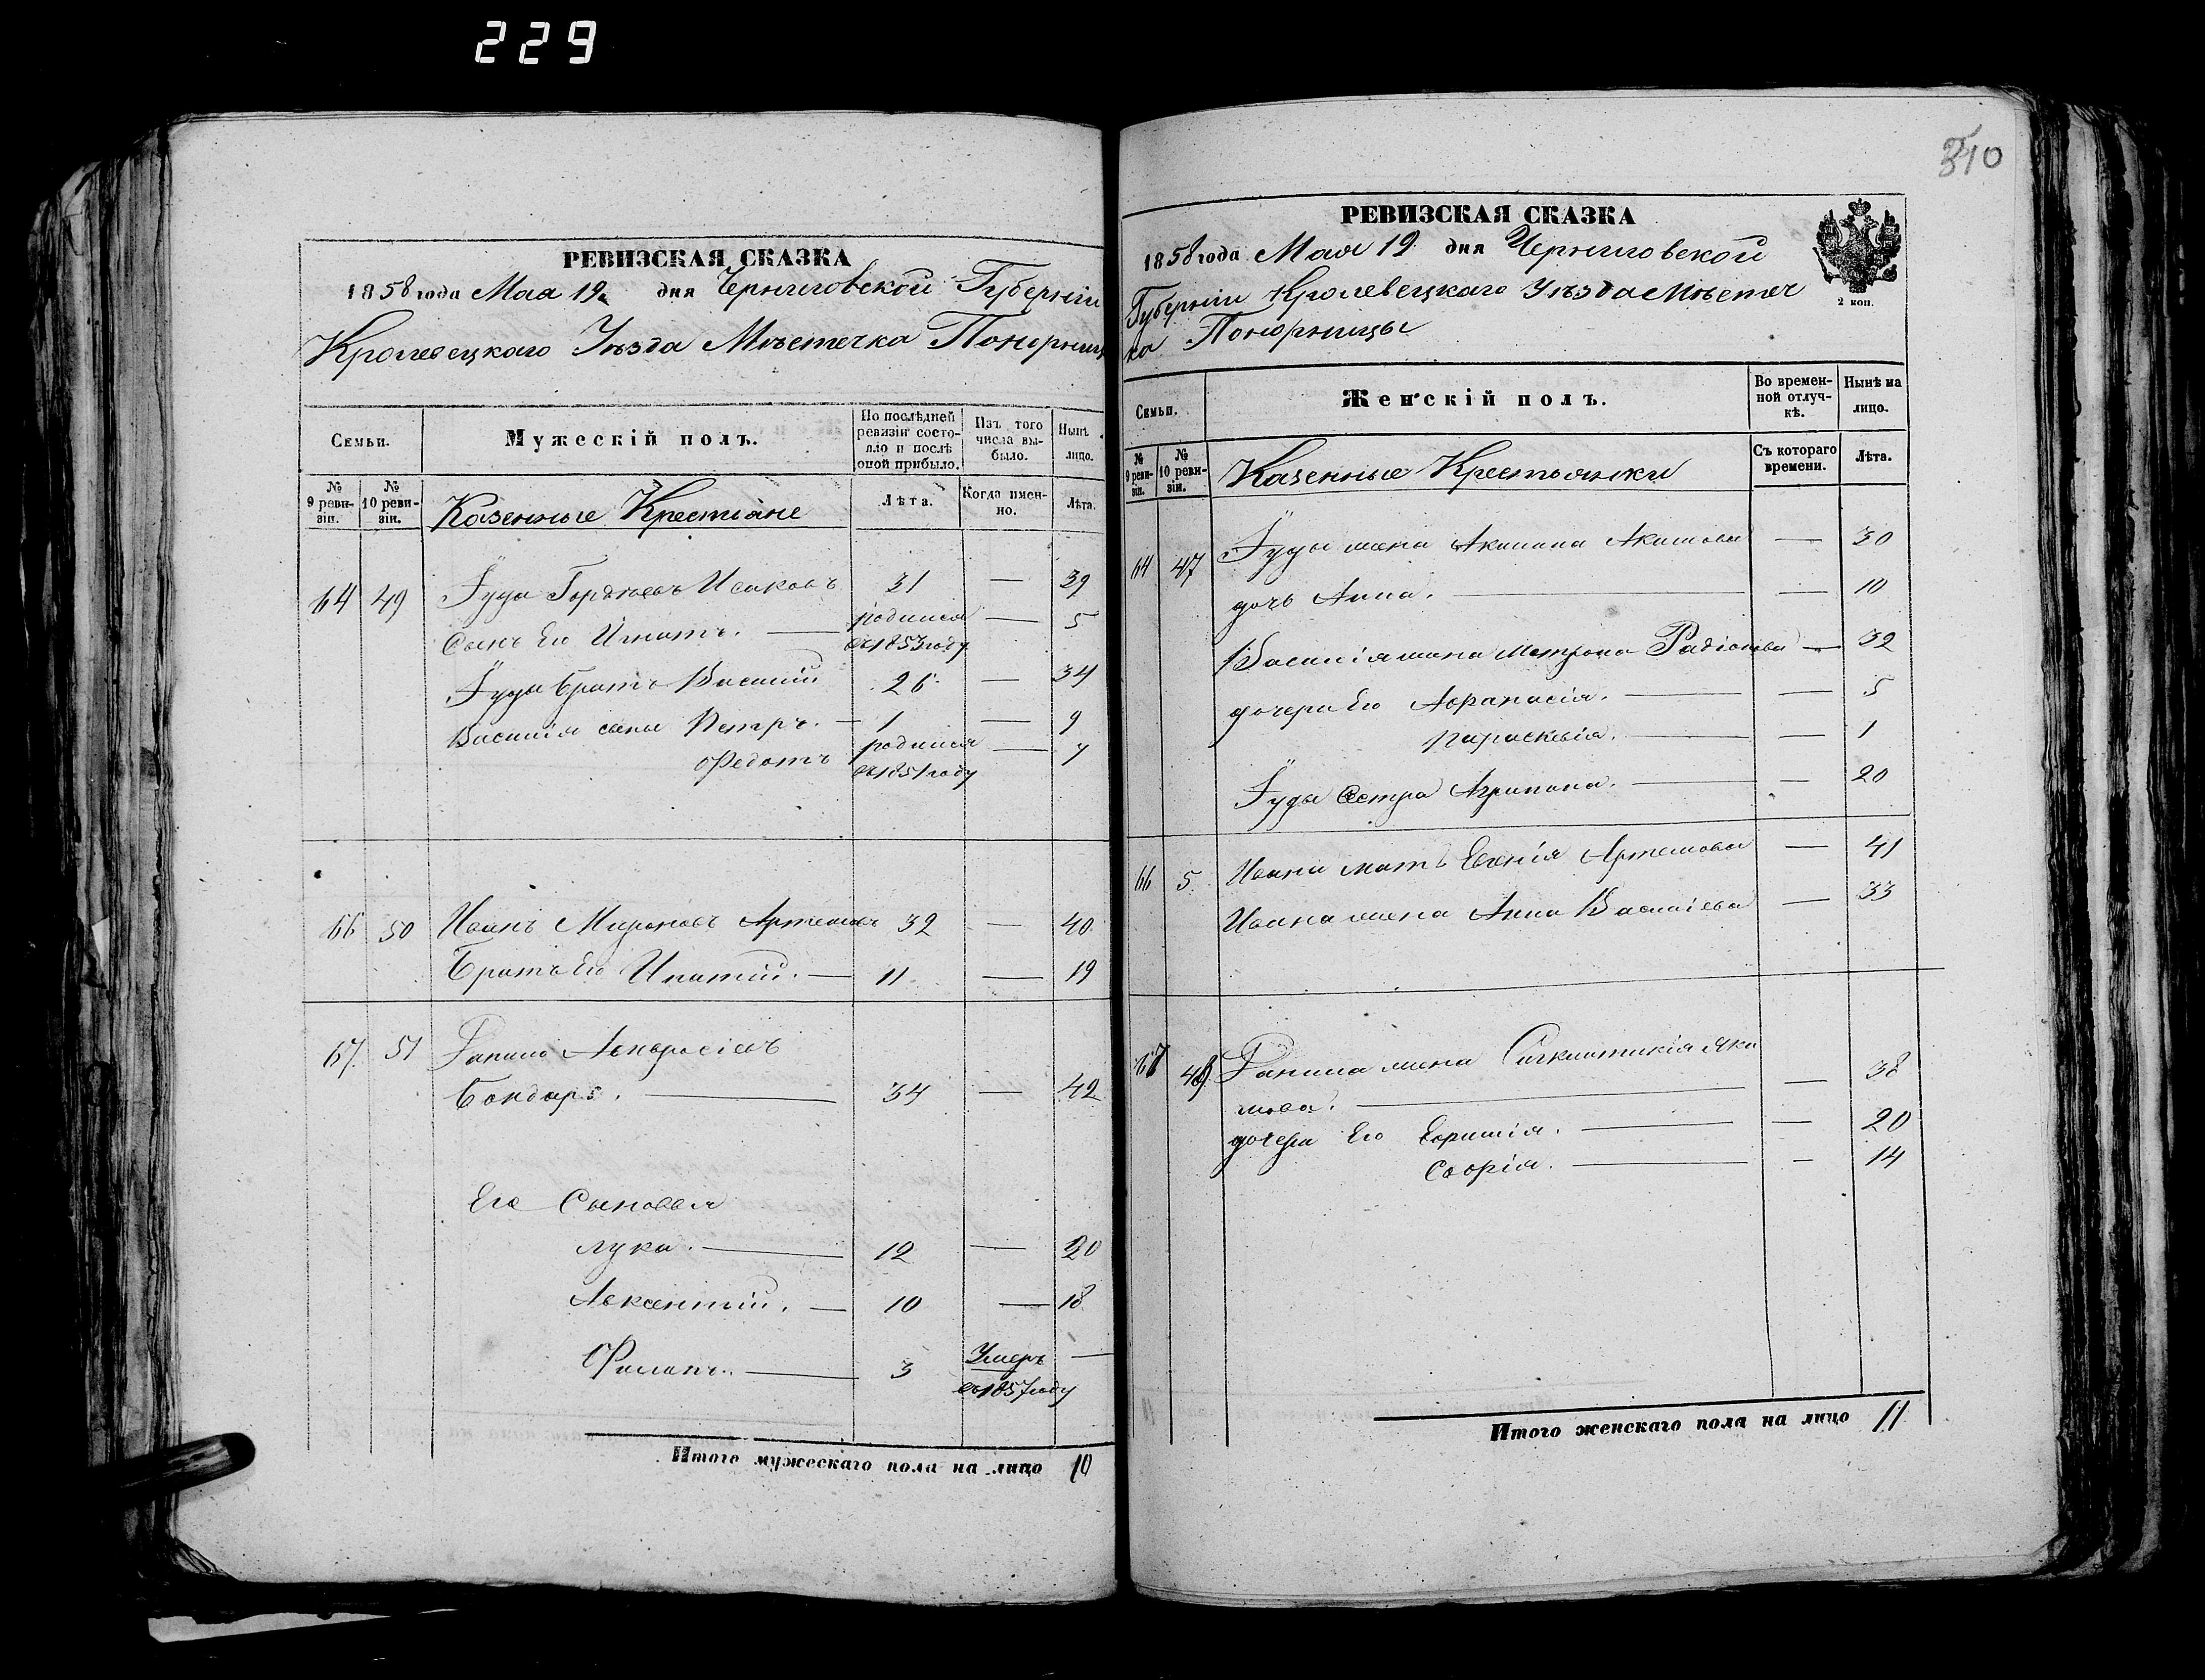 229
РЕВИЗСКАЯ СКАЗКА
1858 года Мая 19 дня Черниговской Губерніи
Кролевецкаго Уѣзда Мѣстечка Понорниц
Семьи.
Мужескій полъ.
По послѣдней ревизіи состояло и послѣ оной прибыло.
Изъ того числа выбыло.
Нынѣ лицо.
№ 9 ревизіи.
№ 10 ревизіи.
Казенные Крестіане
Лѣта.
Когда именно.
Лѣта.
64 49 Гуда Гордѣевъ Исаковъ 31 — 39
Сынъ Его Игнатъ. — родился въ 1853 году — 5
Гуды братъ Василий 26 — 34
Василія сыны Петръ. — 1 — 9
Федотъ родился въ 1851 году — 7
66 50 Иванъ Мироновъ Артемовъ 32 — 40
Братъ Его Ипатий. — 11 — 19
67 51 Данило
Бондарь. — 34 — 42
Его Сыновья
Лука. — 12 — 20
Авксентий. — 10 — 18
Филипъ. — 3 Умеръ въ 1857 году —
Итого мужескаго пола на лицо 10
340
РЕВИЗСКАЯ СКАЗКА
1858 года Мая 19 дня Черниговской
Губерніи Кролевецкаго Уѣзда Мѣстеч
ка Понорницы
2 коп.
Семьи.
Женскій полъ.
Во временной отлучкѣ.
Нынѣ на лицо.
№ 9 ревизіи.
№ 10 ревизіи.
Казенные Крестьянки
Съ котораго времени.
Лѣта.
64 47 Гуды жена Акилина Акимова — 30
дочь Анна. — — 10
Василія жена Матрона Радіонова — 32
дочери Его Афанасія. — — 5
Параскевія. — — 1
Гуды Сестра Агрипина. — — 20
66 5 Ивана мать Евгенія Артемова — 41
Ивана жена Анна Василіева — 33
67 48 Данила жена Яки
мова. — — 38
дочери Его Ефимія. — — 20
Софія. — — 14
Итого женскаго пола на лицо 11